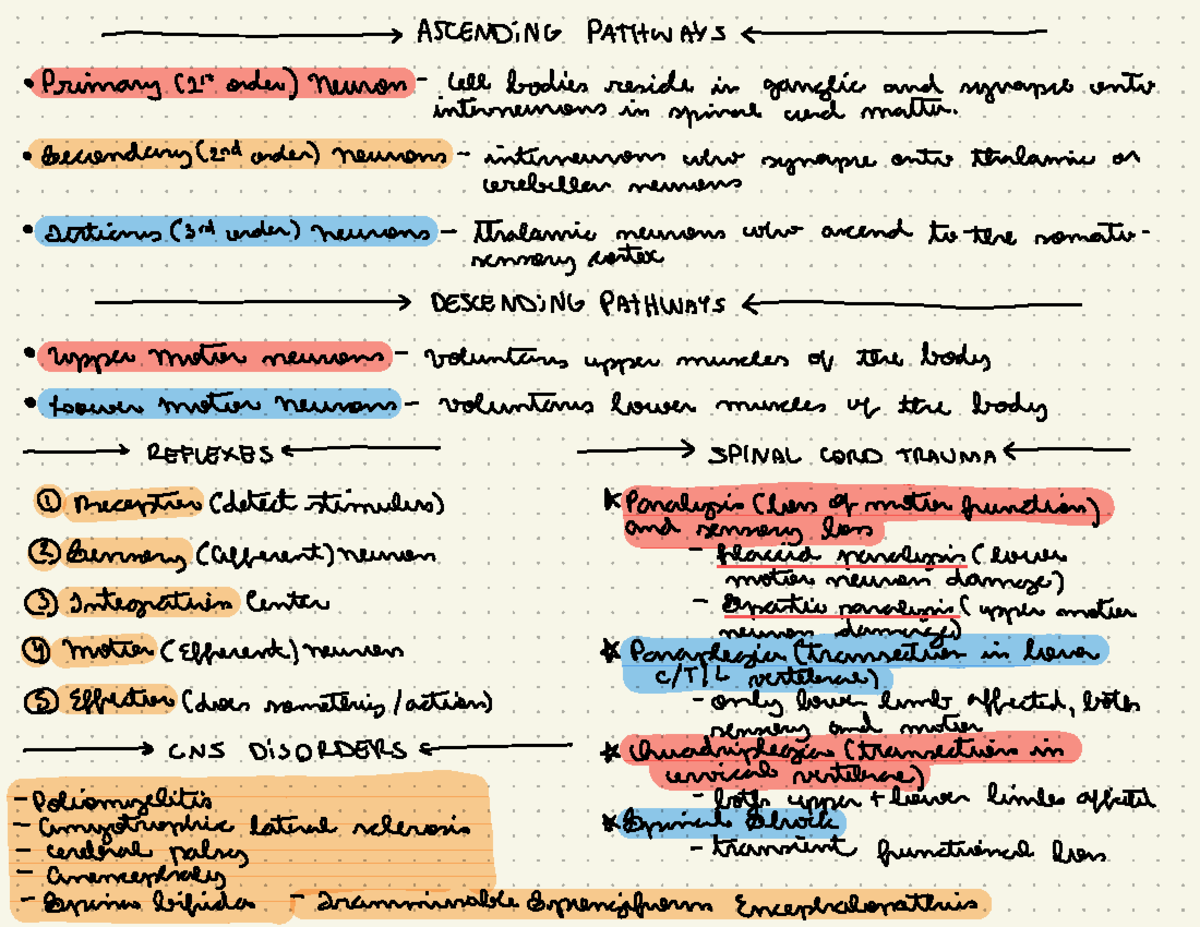 ASCENDING PATHWAYS
• Primary (1st order) Neuron - Cell bodies reside in ganglia and synapse onto
interneurons in spinal cord matter.
• Secondary (2nd order) neurons - interneurons who synapse onto thalamic or
cerebellar neurons
• (3rd order) neurons - Thalamic neurons who ascend to the somato-
sensory cortex
DESCENDING PATHWAYS
• Upper motor neurons - voluntary upper muscles of the body
• Lower motor neurons - voluntary lower muscles of the body
REFLEXES
① Receptor (detect stimulus)
② Sensory (afferent) neuron
③ Integration Center
④ Motor (Efferent) neuron
⑤ Effector (does something/action)
CNS DISORDERS
- Poliomyelitis
- Amyotrophic lateral sclerosis
- cerebral palsy
- Anencephaly
- Spina bifida - Transmissable Spongiform Encephalopathies
SPINAL CORD TRAUMA
* Paralysis (loss of motor function)
and sensory loss
- flaccid paralysis (lower
motor neuron damage)
- Spastic paralysis (upper motor
neuron damage)
* Paraplegia (transection in lower
C/T/L vertebrae)
- only lower limb affected, both
sensory and motor
* Quadriplegia (transection in
cervical vertebrae)
- both upper + lower limbs affected
* Spinal Shock
- transient functional loss